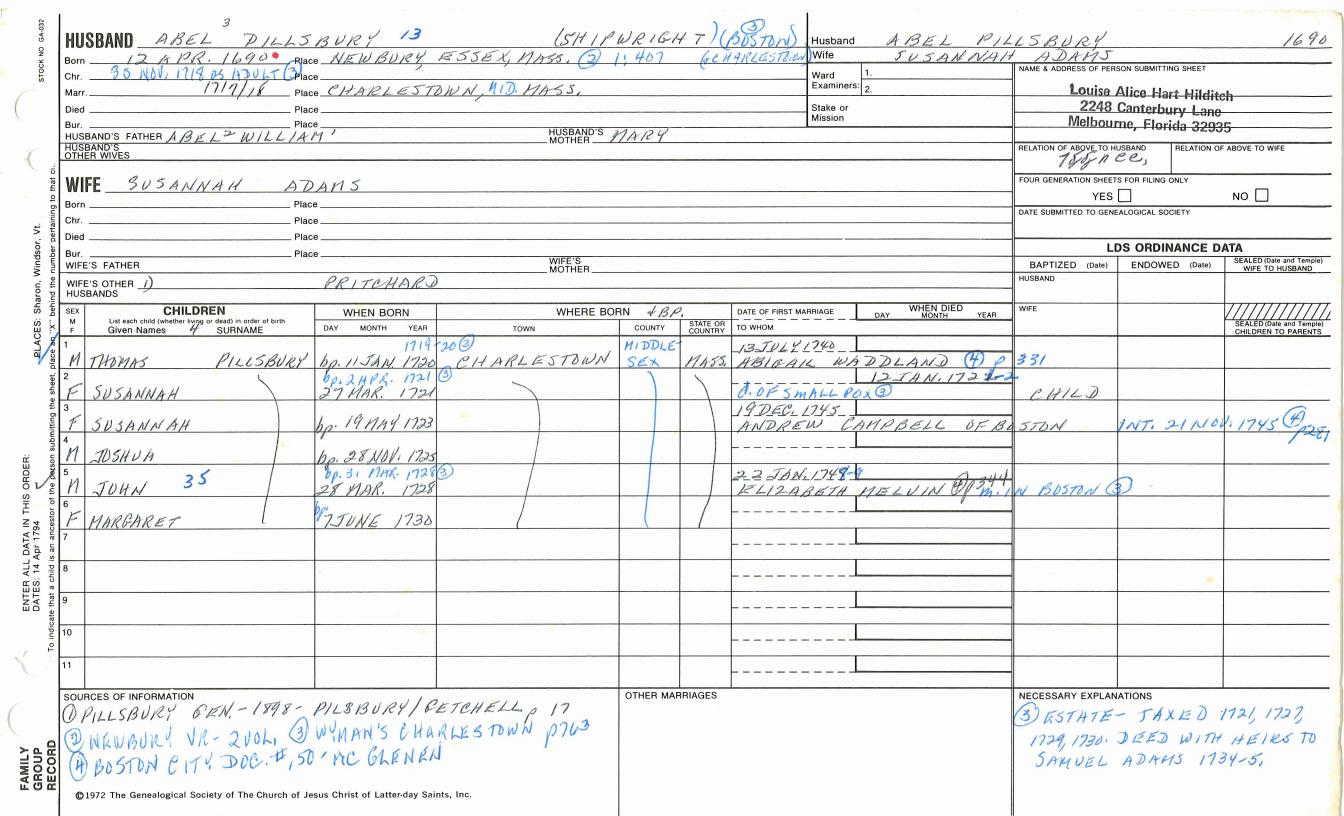 STOCK NO. GA-032
3
HUSBAND ABEL PILLSBURY 13 (SHIPWRIGHT) (BOSTON) ③
Born 12 APR. 1690 Place NEWBURY ESSEX, MASS. ② 1:407 (CHARLESTOWN)
Chr. 30 NOV. 1718 as ADULT ③ Place
Marr. 1717/18 Place CHARLESTOWN, MID. MASS.
Died Place
Bur. Place
HUSBAND'S FATHER ABEL² WILLIAM¹ HUSBAND'S MOTHER MARY
HUSBAND'S OTHER WIVES
Husband ABEL PILLSBURY 1690
Wife SUSANNAH ADAMS
Ward Examiners: 1.
2.
Stake or Mission
NAME & ADDRESS OF PERSON SUBMITTING SHEET
Louise Alice Hart Hilditch
2248 Canterbury Lane
Melbourne, Florida 32935
RELATION OF ABOVE TO HUSBAND RELATION OF ABOVE TO WIFE
FOUR GENERATION SHEETS FOR FILING ONLY
YES NO
DATE SUBMITTED TO GENEALOGICAL SOCIETY
WIFE SUSANNAH ADAMS
Born Place
Chr. Place
Died Place
Bur. Place
WIFE'S FATHER WIFE'S MOTHER
WIFE'S OTHER HUSBANDS 1) PRITCHARD
LDS ORDINANCE DATA
BAPTIZED (Date) ENDOWED (Date) SEALED (Date and Temple) WIFE TO HUSBAND
HUSBAND
WIFE
SEALED (Date and Temple) CHILDREN TO PARENTS
SEX M F CHILDREN WHEN BORN WHERE BORN & BP. DATE OF FIRST MARRIAGE WHEN DIED
List each child (whether living or dead) in order of birth
Given Names 4 SURNAME DAY MONTH YEAR TOWN COUNTY STATE OR COUNTRY TO WHOM DAY MONTH YEAR
1 1719-20 ③ MIDDLE- 13 JULY 1740
M THOMAS PILLSBURY bp. 11 JAN. 1720 CHARLESTOWN SEX MASS. ABIGAIL WADDLAND ④ p 331
2 bp. 2 APR. 1721 ③ 12 JAN. 172
F SUSANNAH 27 MAR. 1721 d. OF SMALL POX ③ CHILD
3 19 DEC. 1745
F SUSANNAH bp. 19 MAY 1723 ANDREW CAMPBELL OF BOSTON INT. 21 NOV. 1745 ④
4
M JOSHUA bp. 28 NOV. 1725
5 bp. 31 MAR. 1728 ③ 22 JAN. 174
M JOHN 35 28 MAR. 1728 ELIZABETH MELVIN p344 m. IN BOSTON ③
6
F MARGARET bp. 7 JUNE 1730
7
8
9
10
11
SOURCES OF INFORMATION
① PILLSBURY GEN.-1898- PILSBURY/GETCHELL p 17
② NEWBURY VR- 2VOL, ③ WYMAN'S CHARLESTOWN p763
④ BOSTON CITY DOC. #150 MC GLENEN
OTHER MARRIAGES
NECESSARY EXPLANATIONS
③ ESTATE- TAXED 1721, 1727,
1729, 1730. DEED WITH HEIRS TO
SAMUEL ADAMS 1734-5.
©1972 The Genealogical Society of The Church of Jesus Christ of Latter-day Saints, Inc.
FAMILY GROUP RECORD
ENTER ALL DATA IN THIS ORDER:
DATES: 14 Apr 1794
PLACES: Sharon, Windsor, Vt.
To indicate that a child is an ancestor of the person submitting the sheet, place an "X" behind the number pertaining to that child.